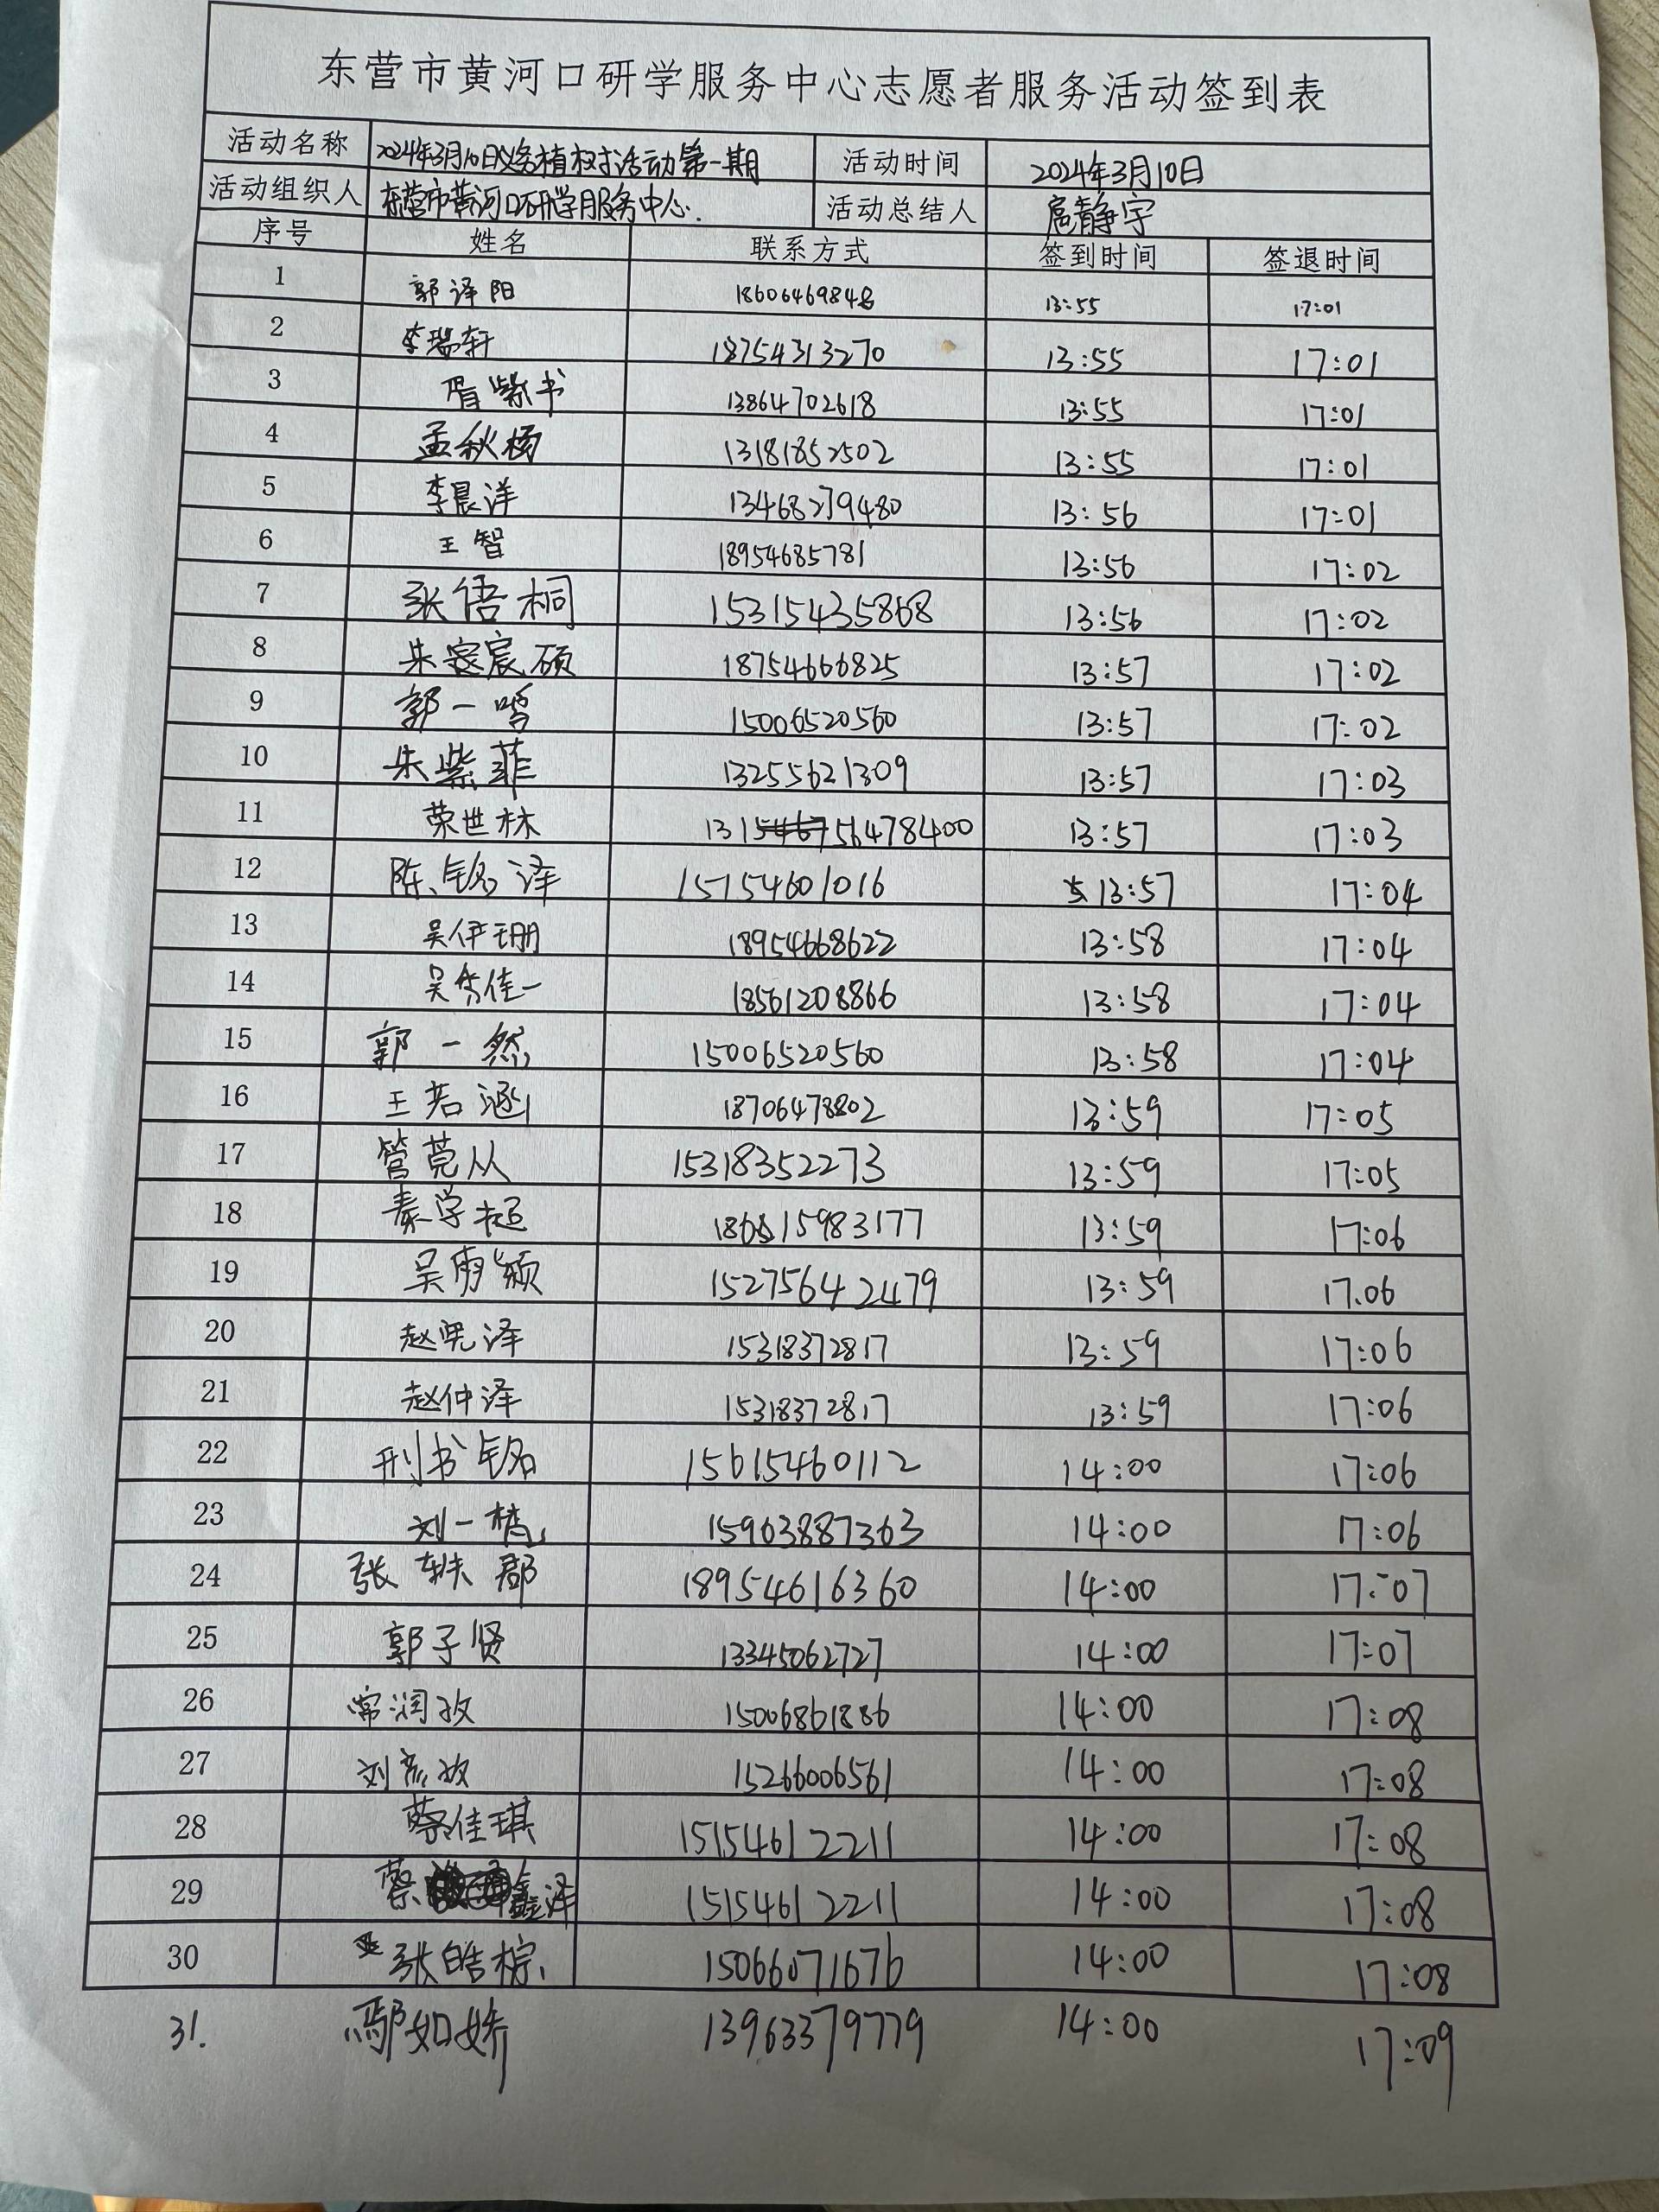 东营市黄河口研学服务中心志愿者服务活动签到表
活动名称 2024年3月10日义务植树活动第一期 活动时间 2024年3月10日
活动组织人 东营市黄河口研学服务中心. 活动总结人 扈静宇
序号 姓名 联系方式 签到时间 签退时间
1 郭译阳 18606469848 13:55 17:01
2 李瑞轩 18754313270 13:55 17:01
3 胥紫书 13864702618 13:55 17:01
4 孟秋杨 13181852502 13:55 17:01
5 李晨洋 13468279480 13:56 17:01
6 王智 18954685781 13:56 17:02
7 张悟桐 15315435868 13:56 17:02
8 朱容宸硕 18754666825 13:57 17:02
9 郭一鸣 15006520560 13:57 17:02
10 朱紫菲 13255621309 13:57 17:03
11 荣世林 56478400 13:57 17:03
12 陈铭泽 15154601016 13:57 17:04
13 吴伊珊 18954668622 13:58 17:04
14 吴佳一 18561208866 13:58 17:04
15 郭一然 15006520560 13:58 17:04
16 王若涵 18706478802 13:59 17:05
17 管莞从 15318352273 13:59 17:05
18 秦学超 15983177 13:59 17:06
19 吴雨颖 15275642479 13:59 17.06
20 赵宪泽 15318372817 13:59 17:06
21 赵仲泽 15318372817 13:59 17:06
22 刑书铭 15615460112 14:00 17:06
23 刘一梵 15963887363 14:00 17:06
24 张轶郡 18954616360 14:00 17:07
25 郭子贤 13345062727 14:00 17:07
26 常润孜 15006861886 14:00 17:08
27 刘彦孜 15266006561 14:00 17:08
28 蔡佳琪 15154612211 14:00 17:08
29 蔡鑫泽 15154612211 14:00 17:08
30 张皓棕 15066071676 14:00 17:08
31. 鄢如娇 13963379779 14:00 17:09